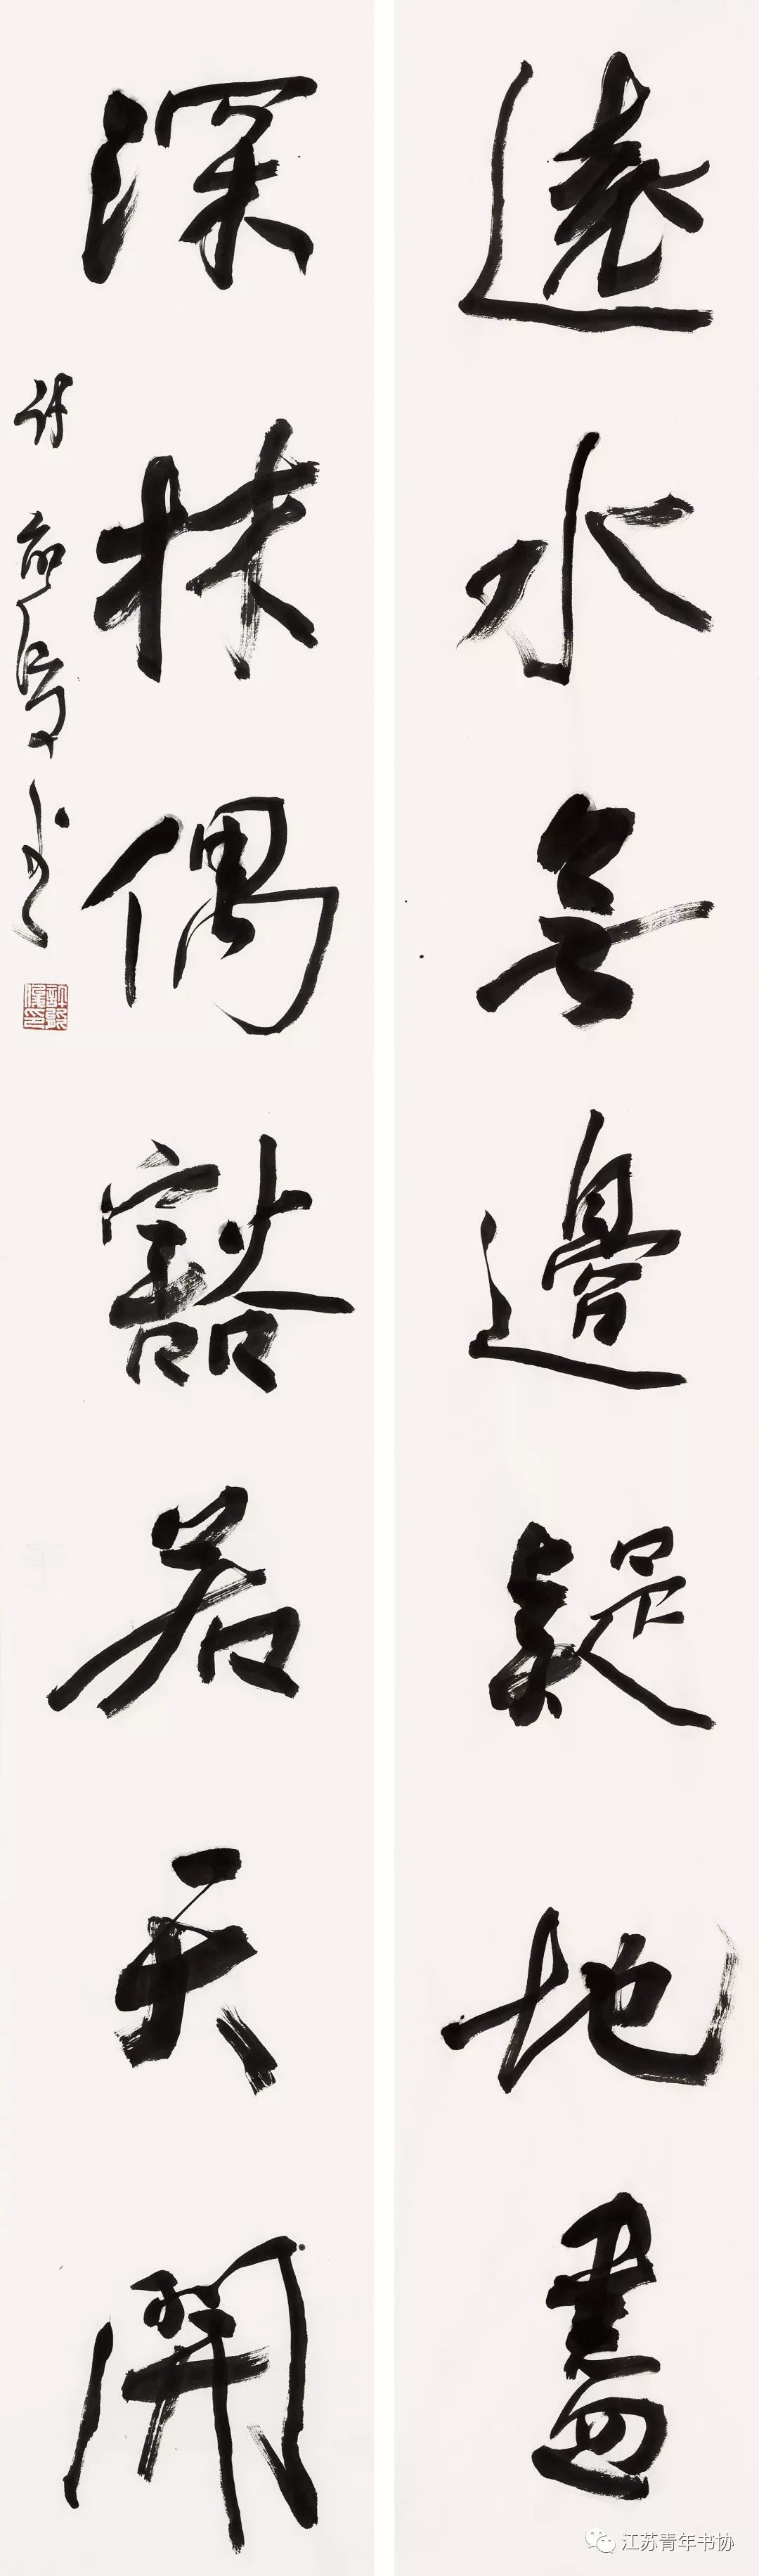 遠水無邊疑地盡
深林偶豁若天開
江苏青年书协